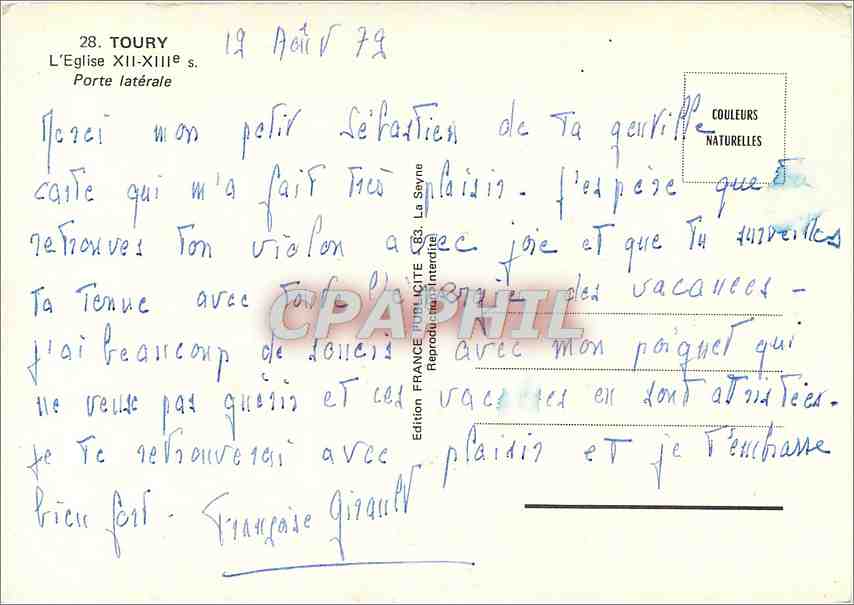 28. TOURY
L'Eglise XII-XIIIe s.
Porte latérale
12 Août 79
COULEURS
NATURELLES
Merci mon petit Sébastien de ta gentille
carte qui m'a fait très plaisir. J'espère que tu
retrouves ton violon avec joie et que tu surveilles
ta tenue avec toute l'énergie des vacances -
j'ai beaucoup de soucis avec mon poignet qui
ne veux pas guérir et ces vacances en sont attristées.
Je te retrouverai avec plaisir et je t'embrasse
bien fort. Françoise Girault
Edition FRANCE PUBLICITE 83. La Seyne
Reproduction Interdite
CPAPHIL